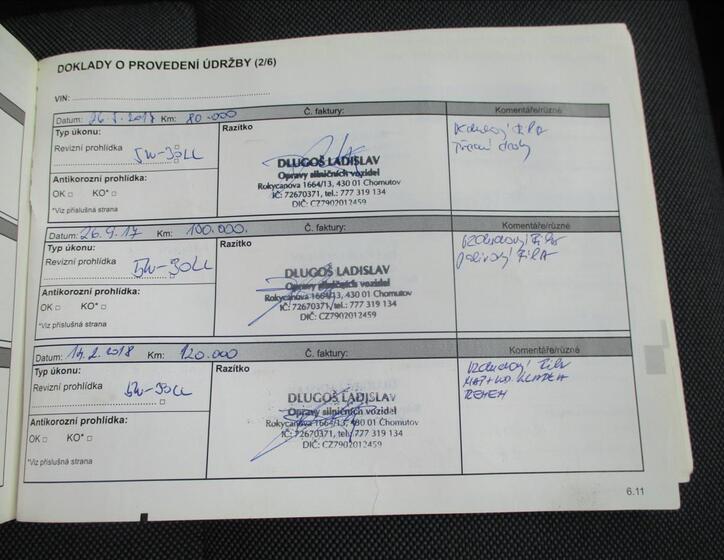 DOKLADY O PROVEDENÍ ÚDRŽBY (2/6)
VIN:
Datum: 26.5.2017 Km: 80.000 Č. faktury: Komentáře/různé
Typ úkonu: Razítko
Revizní prohlídka 5W-30LL
Antikorozní prohlídka:
OK KO*
*Viz příslušná strana
DLUGOŠ LADISLAV
Opravy silničních vozidel
Rokycanova 1664/13, 430 01 Chomutov
IČ: 72670371, tel.: 777 319 134
DIČ: CZ7902012459
Datum: 26.9.17 Km: 100.000. Č. faktury: Komentáře/různé
Typ úkonu: Razítko
Revizní prohlídka 5W-30LL
Antikorozní prohlídka:
OK KO*
*Viz příslušná strana
DLUGOŠ LADISLAV
Opravy silničních vozidel
Rokycanova 1664/13, 430 01 Chomutov
IČ: 72670371, tel.: 777 319 134
DIČ: CZ7902012459
Datum: 14.2.2018 Km: 120.000 Č. faktury: Komentáře/různé
Typ úkonu: Razítko
Revizní prohlídka 5W-30LL
Antikorozní prohlídka:
OK KO*
*Viz příslušná strana
DLUGOŠ LADISLAV
Opravy silničních vozidel
Rokycanova 1664/13, 430 01 Chomutov
IČ: 72670371, tel.: 777 319 134
DIČ: CZ7902012459
6.11